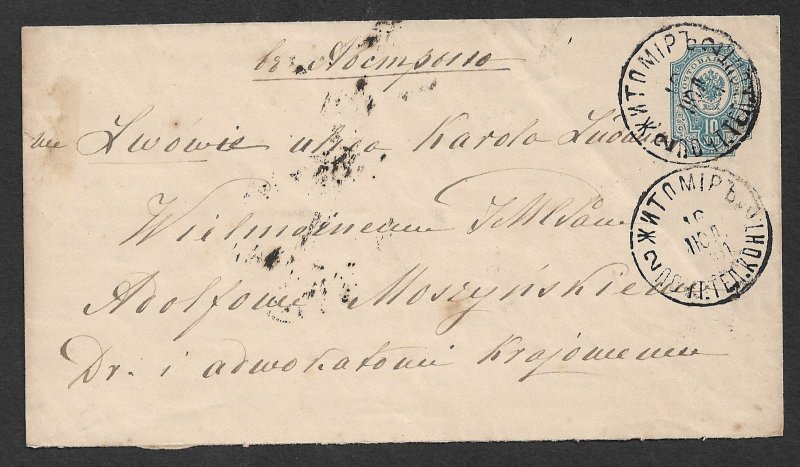 въ Австрію
we Lwówie ulica Karola Ludwika
Wielmożnemu JMPanu
Adolfowi Moszyńskiemu
Dr. i adwokatowi Krajowemu
10
ЖИТОМІРЪ
2 ЖИТОМІРЪ
18
ІЮЛ